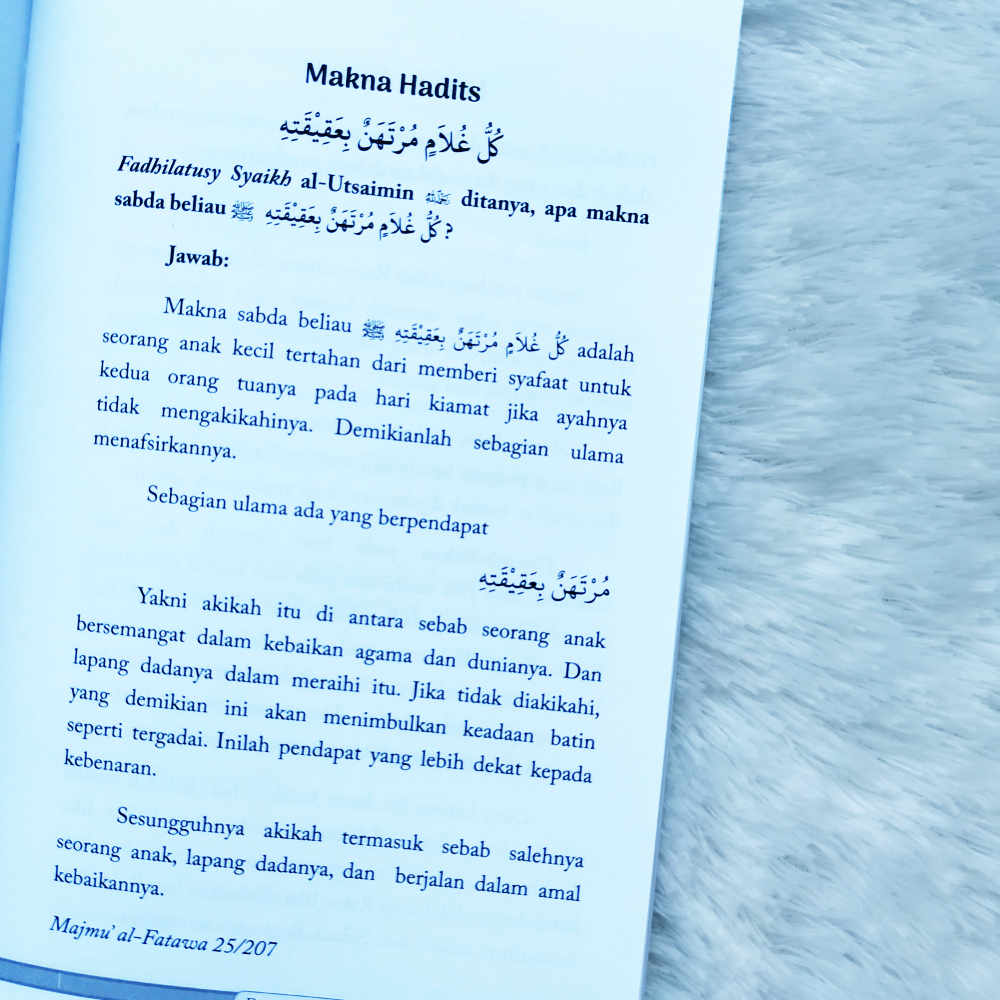 Makna Hadits
كُلُّ غُلاَمٍ مُرْتَهَنٌ بِعَقِيْقَتِهِ
Fadhilatusy Syaikh al-Utsaimin رحمه الله ditanya, apa makna
sabda beliau ﷺ كُلُّ غُلاَمٍ مُرْتَهَنٌ بِعَقِيْقَتِهِ ?
Jawab:
Makna sabda beliau ﷺ كُلُّ غُلاَمٍ مُرْتَهَنٌ بِعَقِيْقَتِهِ adalah
seorang anak kecil tertahan dari memberi syafaat untuk
kedua orang tuanya pada hari kiamat jika ayahnya
tidak mengakikahinya. Demikianlah sebagian ulama
menafsirkannya.
Sebagian ulama ada yang berpendapat
مُرْتَهَنٌ بِعَقِيْقَتِهِ
Yakni akikah itu di antara sebab seorang anak
bersemangat dalam kebaikan agama dan dunianya. Dan
lapang dadanya dalam meraihi itu. Jika tidak diakikahi,
yang demikian ini akan menimbulkan keadaan batin
seperti tergadai. Inilah pendapat yang lebih dekat kepada
kebenaran.
Sesungguhnya akikah termasuk sebab salehnya
seorang anak, lapang dadanya, dan berjalan dalam amal
kebaikannya.
Majmu' al-Fatawa 25/207